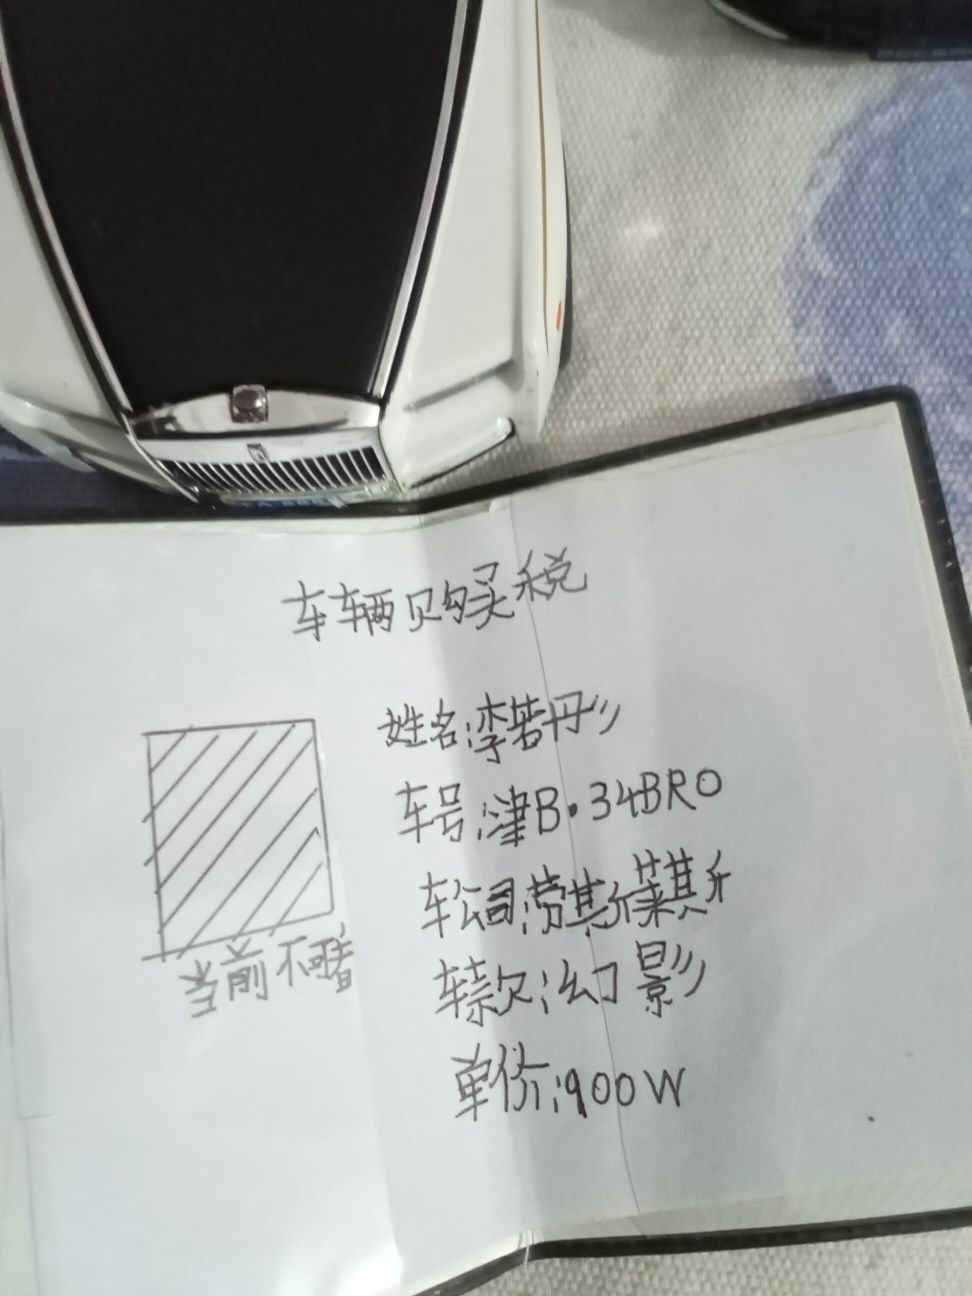 车辆购买税
姓名:李若彤
车号:津B·34BRO
车公司:劳斯莱斯
车款:幻影
单价:900W
当前不可